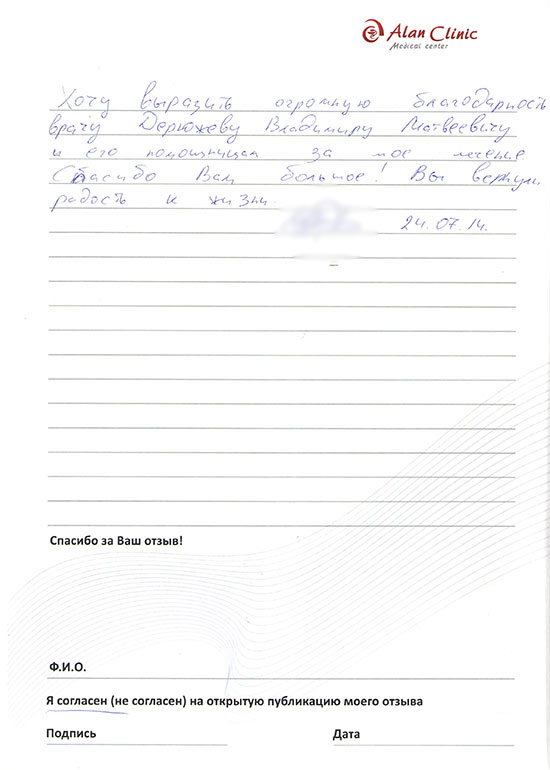 Alan Clinic
Medical center
Хочу выразить огромную благодарность
врачу Дерюжеву Владимиру Матвеевичу
и его помощницам за мое лечение.
Спасибо Вам большое! Вы вернули
радость к жизни.
24.07.14.
Спасибо за Ваш отзыв!
Ф.И.О.
Я согласен (не согласен) на открытую публикацию моего отзыва
Подпись Дата